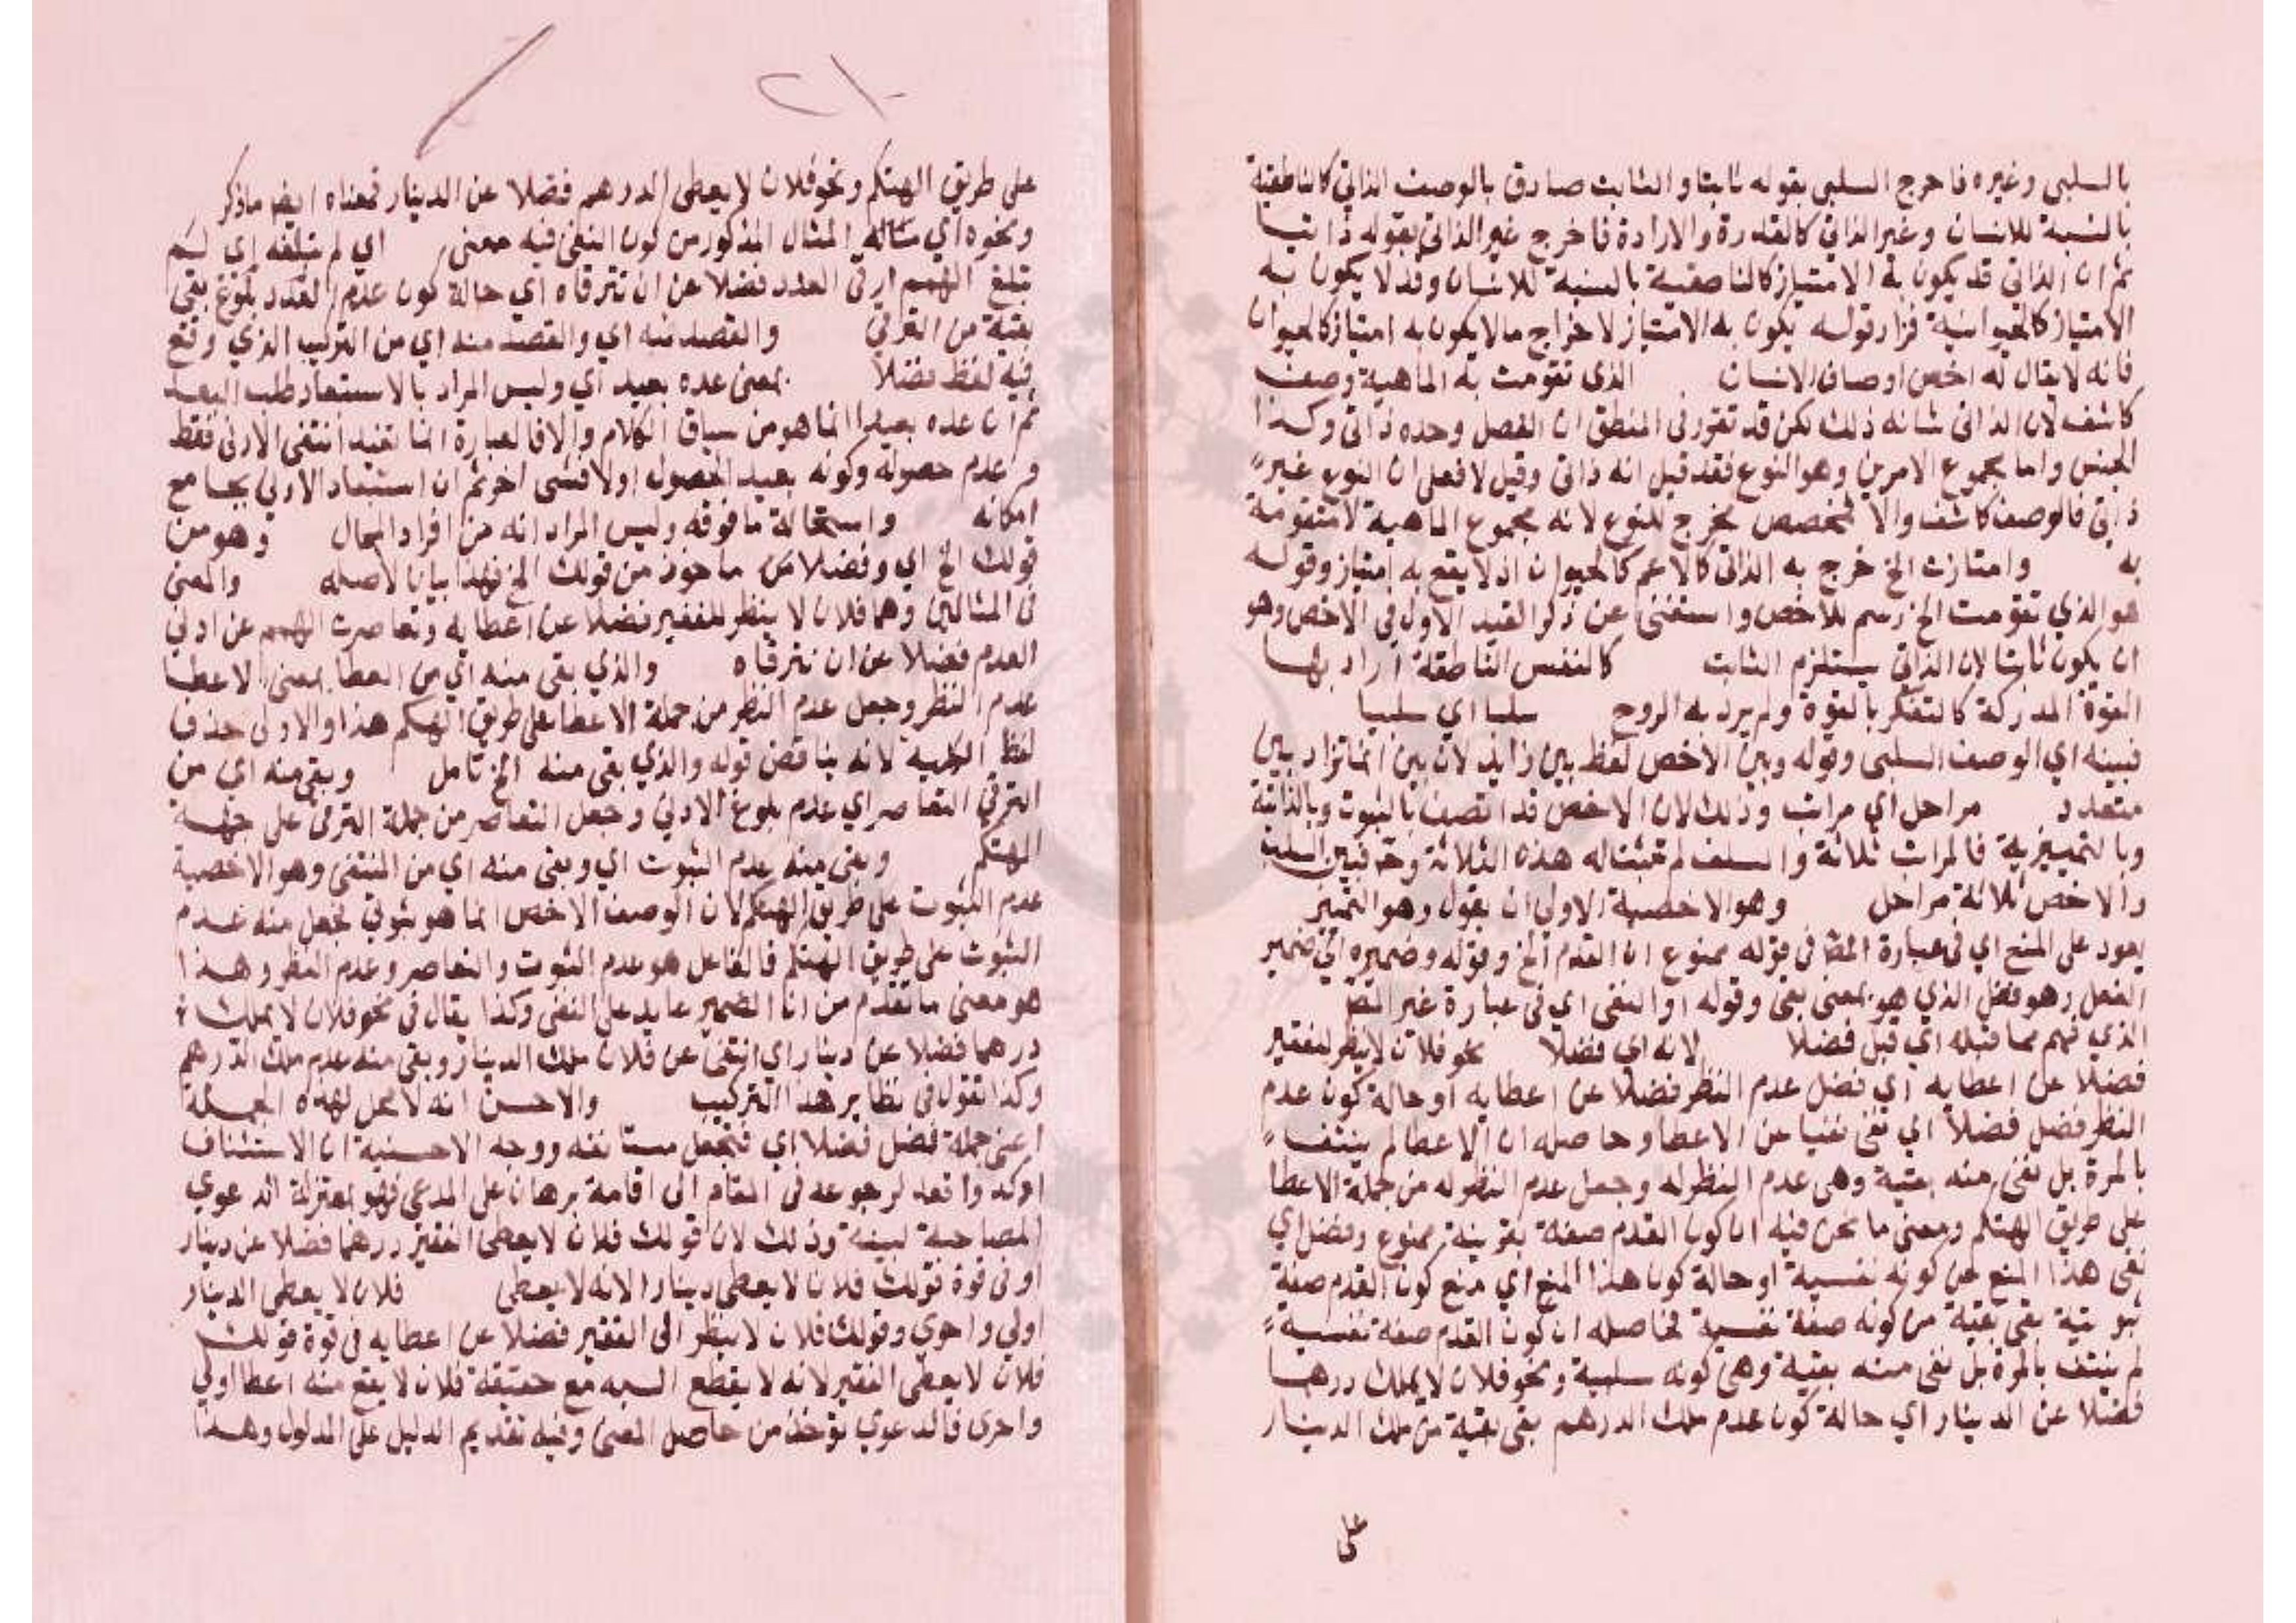 بالسلبى وغيره فاخرج السلبى بقوله ثابتا والثابت صادق بالوصف الذاتى كالناطقية
بالنسبة للانسان وغير الذاتى كالقدرة والارادة فاخرج غير الذاتى بقوله ذاتيا
ثم ان الذاتى قد يكون به الامتياز كالناطقية بالنسبة للانسان وقد لا يكون به
الامتياز كالحيوانية فزاد قوله يكون به الامتياز لاخراج ما لا يكون به امتياز كالحيوان
فانه لا يقال له اخص اوصاف الانسان الذى تقومت به الماهية وصف
كاشف لان الذاتى شانه ذلك لكن قد تقرر فى المنطق ان الفصل وحده ذاتى وكذا
الجنس واما مجموع الامرين وهو النوع فقد قيل انه ذاتى وقيل لا فعلى ان النوع غير
ذاتى فالوصف كاشف والا فمخصص مخرج للنوع لانه مجموع الماهية لا متقومة
به وامتازت الخ خرج به الذاتى كالاعم كالحيوان اذ لا يقع به امتياز وقوله
هو الذي تقومت الخ رسم للاخص واستغنى عن ذكر القيد الاول فى الاخص وهو
ان يكون ثابتا لان الذاتى يستلزم الثابت كالنفس الناطقة اراد بها
القوة المدركة كالتفكر بالقوة ولم يرد به الروح سلبا اي سلبيا
فبينه اي الوصف السلبى وقوله وبين الاخص لفظ بين زايد لان بين انما تزاد بين
متعدد مراحل اي مراتب وذلك لان الاخص قد اتصف بالثبوت وبالذاتية
وبالتمييزية فالمراتب ثلاثة والسلف لم تثبت له هذه الثلاثة وح فبين السلب
والاخص ثلاثة مراحل وهو الاخصية الاولى ان يقول وهو التمييز
يعود على المنع اي فى عبارة المص فى قوله ممنوع ان القدم الخ وقوله وضميره اي ضمير
الفعل وهو فضل الذي هو بمعنى بقى وقوله او النفى اي فى عبارة غير المص
الذي فهم مما قبله اي قبل فضلا لانه اي فضلا نحو فلان لا ينظر لفقير
فضلا عن اعطايه اي فضل عدم النظر فضلا عن اعطايه او حالة كون عدم
النظر فضل فضلا اي نفى نفيا عن الاعطا وحاصله ان الاعطا لم ينتف
بالمرة بل بقى منه بقية وهى عدم النظر له وجعل عدم النظر له من جملة الاعطا
على طريق التهكم ومعنى ما نحن فيه ان كون القدم صفة بقرينة ممنوع وفضل اي
نفى هذا المنع عن كونه نفسية او حالة كون هذا المنع اي منع كون القدم صفة
ثبوتية بقى بقية من كونه صفة نفسية فحاصله ان كون القدم صفة نفسية
لم ينتف بالمرة بل بقى منه بقية وهى كونه سلبية ونحو فلان لا يملك درهما
فضلا عن الدينار اي حالة كون عدم ملك الدرهم بقى بقية من ملك الدينار
على
على طريق التهكم ونحو فلان لا يعطى الدرهم فضلا عن الدينار فمعناه ايضا ما ذكر
ونحوه اي مثاله المثال المذكور من كون النفى فيه معنى اي لم تبلغه اي لم
تبلغ الهمم ادنى العدد فضلا عن ان تترقاه اي حالة كون عدم العدد بلوغ بقى
بقية من الترقى والقصد منه اي والقصد منه اي من التركيب الذي وقع
فيه لفظ فضلا بمعنى عده بعيد اي وليس المراد بالاستبعاد طلب البعد
ثم ان عده بعيدا انما هو من سياق الكلام والا فالعبارة انما تفيد انتفى الادنى فقط
وعدم حصوله وكونه بعيد الحصول اولا فشى اخر ثم ان استبعاد الادنى يجامع
امكانه واستحالة ما فوقه وليس المراد انه من افراد المحال وهو من
قولك الخ اي وفضلا ماخوذ من قولك الخ فهذا بيان لاصله والمعنى
فى المثالين وهما فلان لا ينظر للفقير فضلا عن اعطايه وتقاصرت الهمم عن ادنى
العدم فضلا عن ان تترقاه والذي بقى منه اي من العطا بمعنى الاعطا
عدم النظر وجعل عدم النظر من جملة الاعطا على طريق التهكم هذا والاولى حذف
لفظ الكلية لانه يناقض قوله والذي بقى منه الخ تامل وبقى منه اي من
الترقى التقاصر اي عدم بلوغ الادنى وجعل التقاصر من جملة الترقى على جهة
التهكم وبقى منه عدم الثبوت اي وبقى منه اي من المنتفى وهو الاخصية
عدم الثبوت على طريق التهكم لان الوصف الاخص انما هو ثبوتى فجعل منه عدم
الثبوت على طريق التهكم فالفاعل هو عدم الثبوت والتقاصر وعدم النظر وهذا
هو معنى ما تقدم من ان الضمير عايد على النفى وكذا يقال فى نحو فلان لا يملك
درهما فضلا عن دينار اي انتفى عن فلان ملك الدينار وبقى منه عدم ملك الدرهم
وكذا تقول فى نظاير هذا التركيب والاحسن انه لا محل لهذه الجملة
اعنى جملة فضل فضلا اي فتجعل مستانفة ووجه الاحسنية ان الاستئناف
اوكد واقعد لرجوعه فى المقام الى اقامة برهان على المدعى فهو بمنزلة الدعوي
المصاحبة لبينة وذلك لان قولك فلان لا يعطى الفقير درهما فضلا عن دينار
او فى قوة قولك فلان لا يعطى دينارا لانه لا يعطى فلان لا يعطى الدينار
اولى واحري وقولك فلان لا ينظر الى الفقير فضلا عن اعطايه فى قوة قولك
فلان لا يعطى الفقير لانه لا يقطع اليه مع حقيقة فلان لا يقع منه اعطا اولى
واحرى فالدعوي تؤخذ من حاصل المعنى وفيه تقديم الدليل على المدلول وهذا